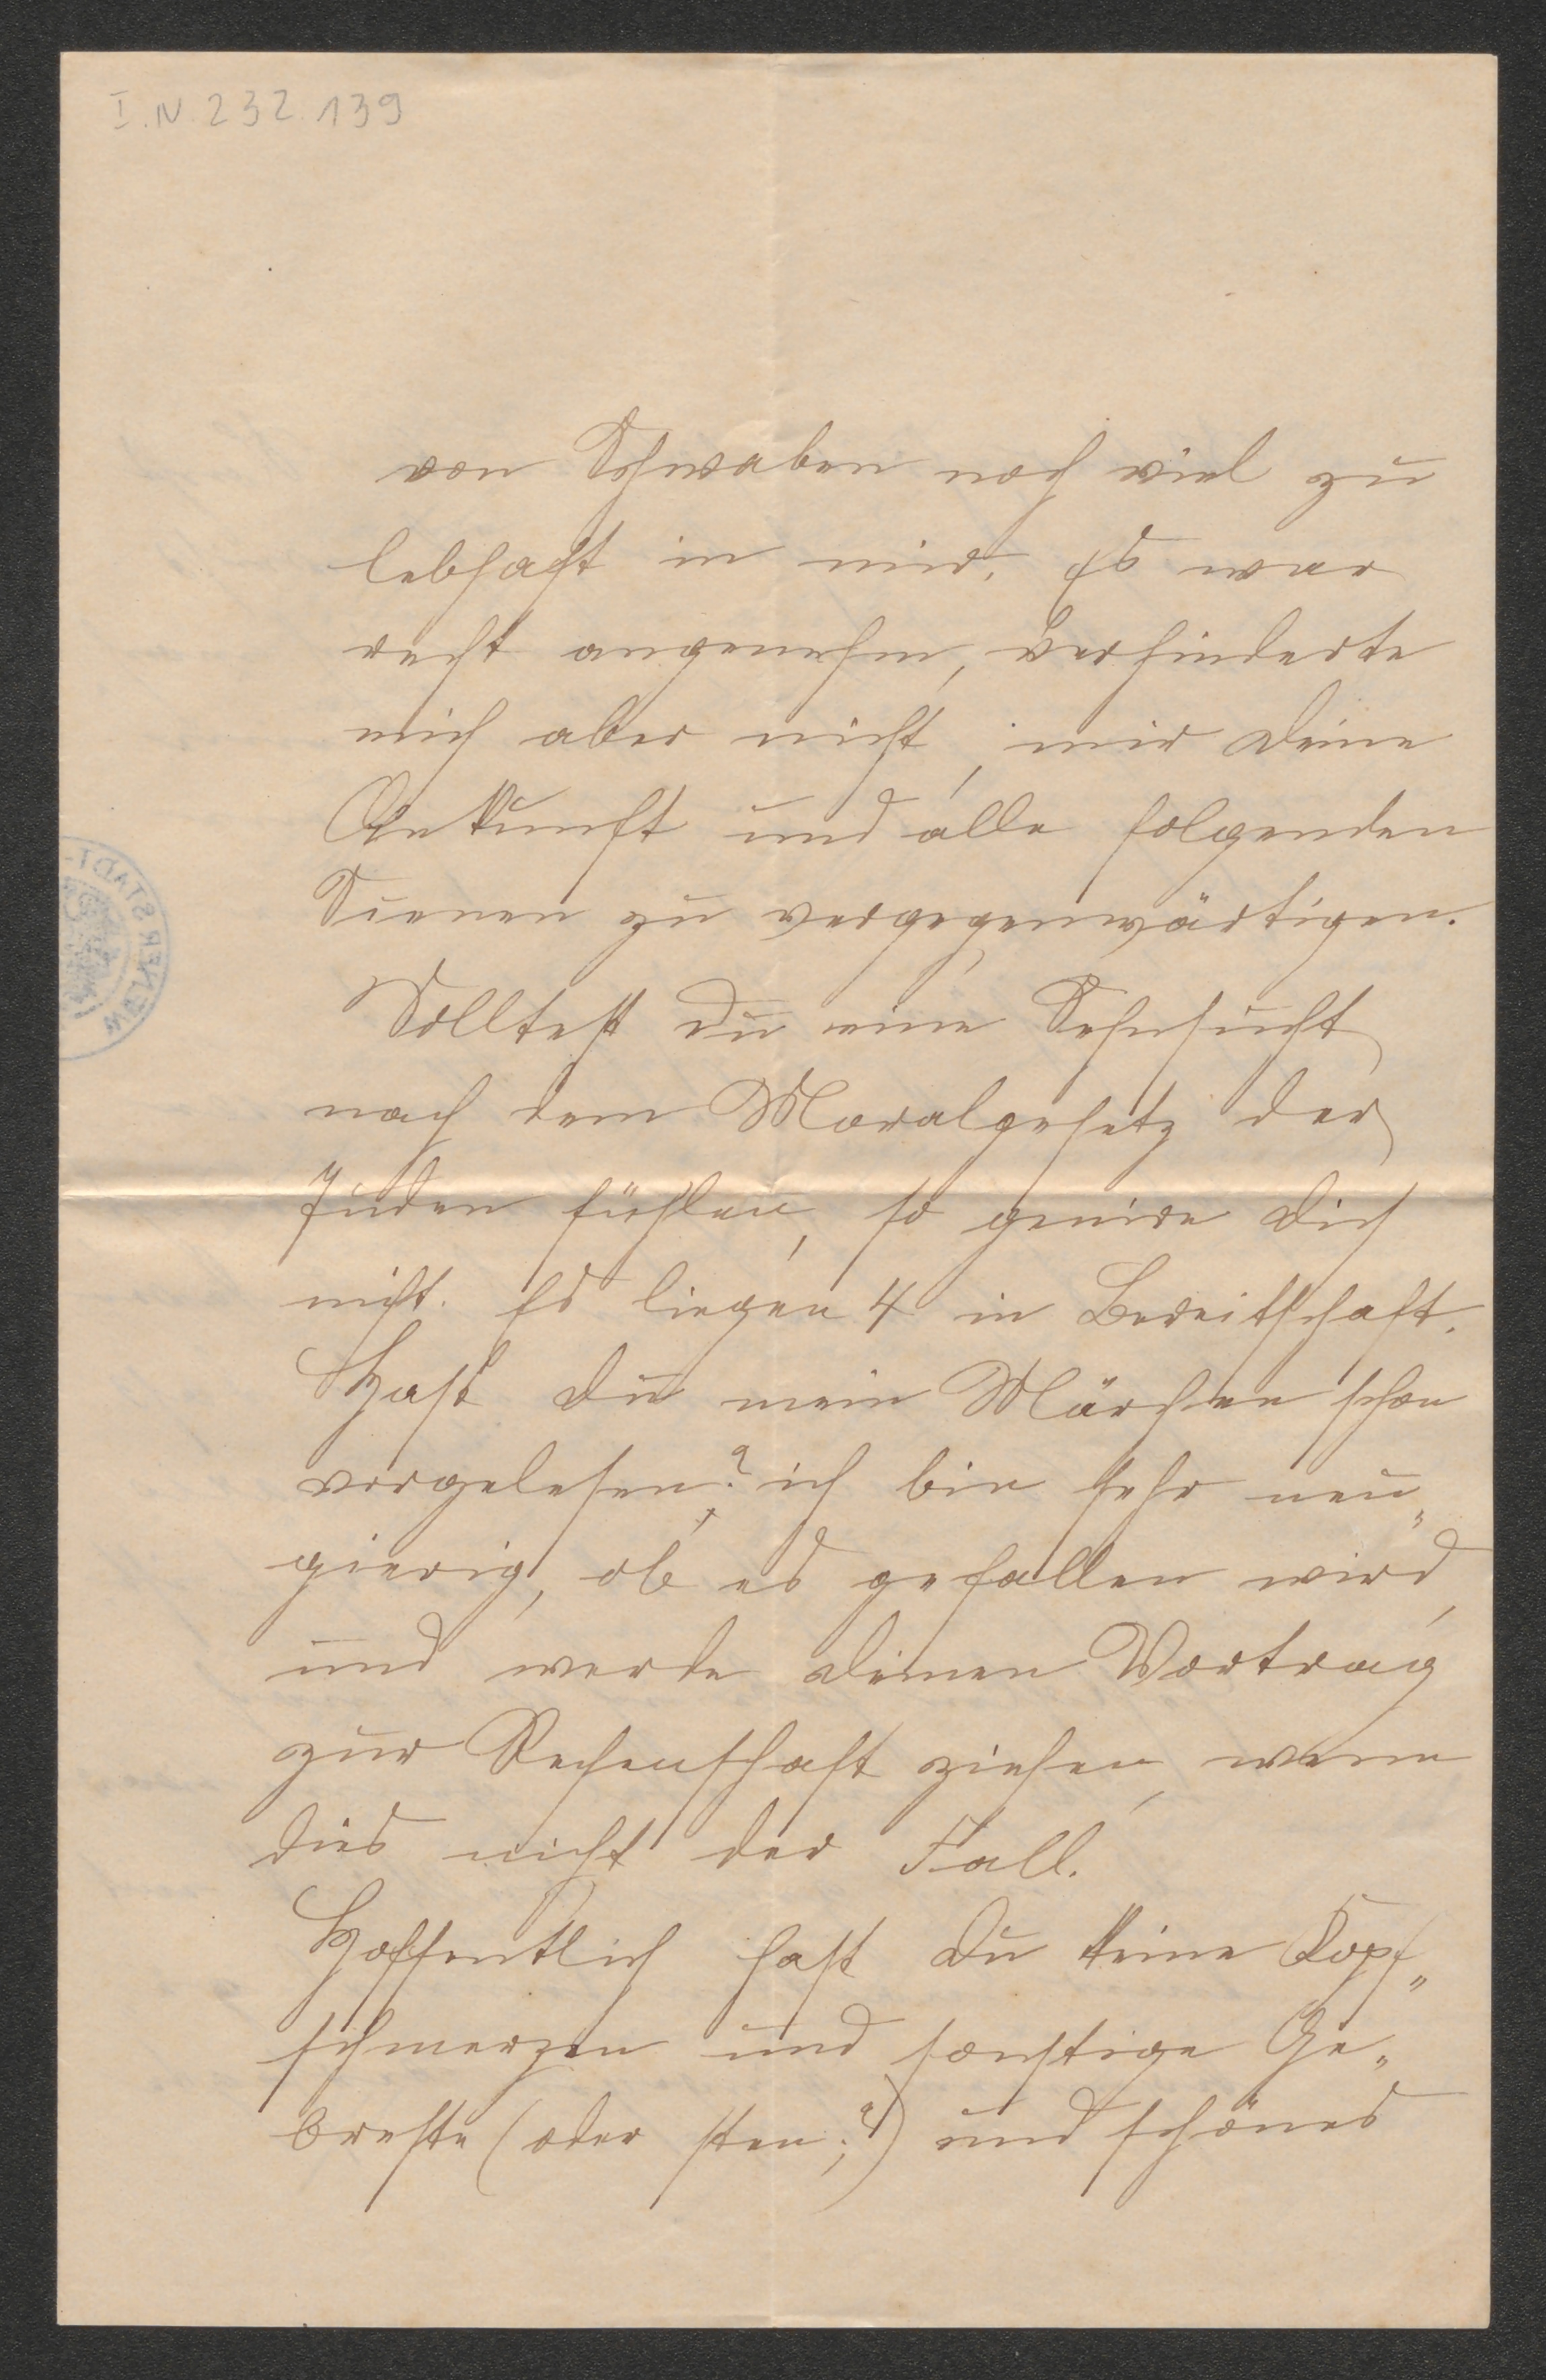 I.N. 232.139
von Schwaben noch viel zu
lebhaft in mir. Es war
recht angenehm, verhinderte
mich aber nicht, mir deine
Ankunft und alle folgenden
Scenen zu vergegenwärtigen.
Solltest du eine Sehnsucht
nach dem Moralgesetz der
Juden fühlen, so genire dich
nicht. Es liegen 4 in Bereitschaft.
Hast du mein Märchen schon
vorgelesen? ich bin sehr neu„
gierig, ob es gefallen wird,
und werde deinen Vortrag
zur Rechenschaft ziehen, wenn
dies nicht der Fall.
Hoffentlich hast du keine Kopf„
schmerzen und sonstige Ge„
breste (oder sten;?) und schönes
WIENER STADT-